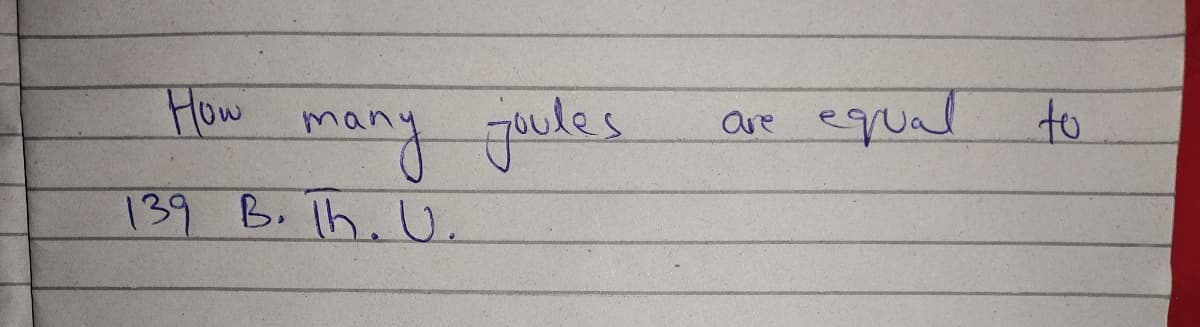 How many joules are equal to
139 B. Th. U.